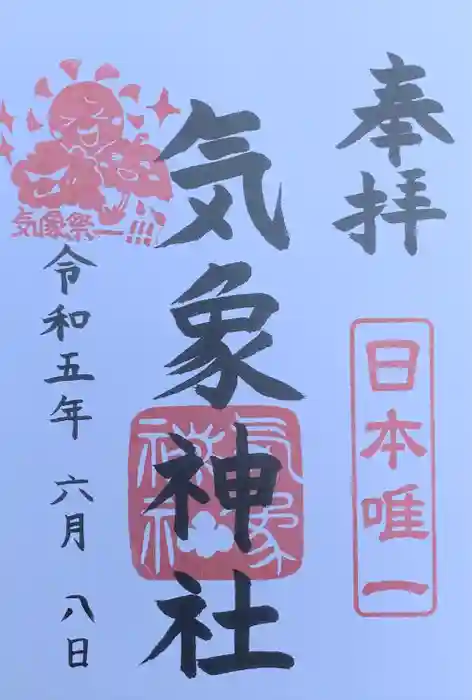 奉拝
日本唯一
気象神社
気象神社
気象祭
令和五年 六月 八日